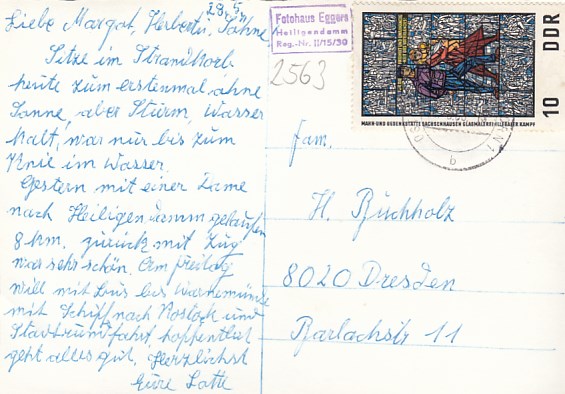 28.5.
Liebe Margot, Herbert u. Söhne
Sitze im Strandkorb
heute zum erstenmal ohne
Sonne, aber Sturm, Wasser
kalt, war nur bis zum
Knie im Wasser.
Gestern mit einer Dame
nach Heiligendamm gelaufen
8 km. zurück mit Zug
war sehr schön. Am Freitag
will mit Bus bis Warnemünde
mit Schiff nach Rostock und
Stadtrundfahrt, hoffentlich
geht alles gut. Herzlichst
Eure Lotte
Fotohaus Eggers
Heiligendamm
Reg.-Nr. II/15/50
2563
DDR
10
MAHN UND GEDENKSTÄTTE SACHSENHAUSEN GLASMALEREI
KAMPF
b
Fam.
H. Buchholz
8020 Dresden
Barlachstr 11